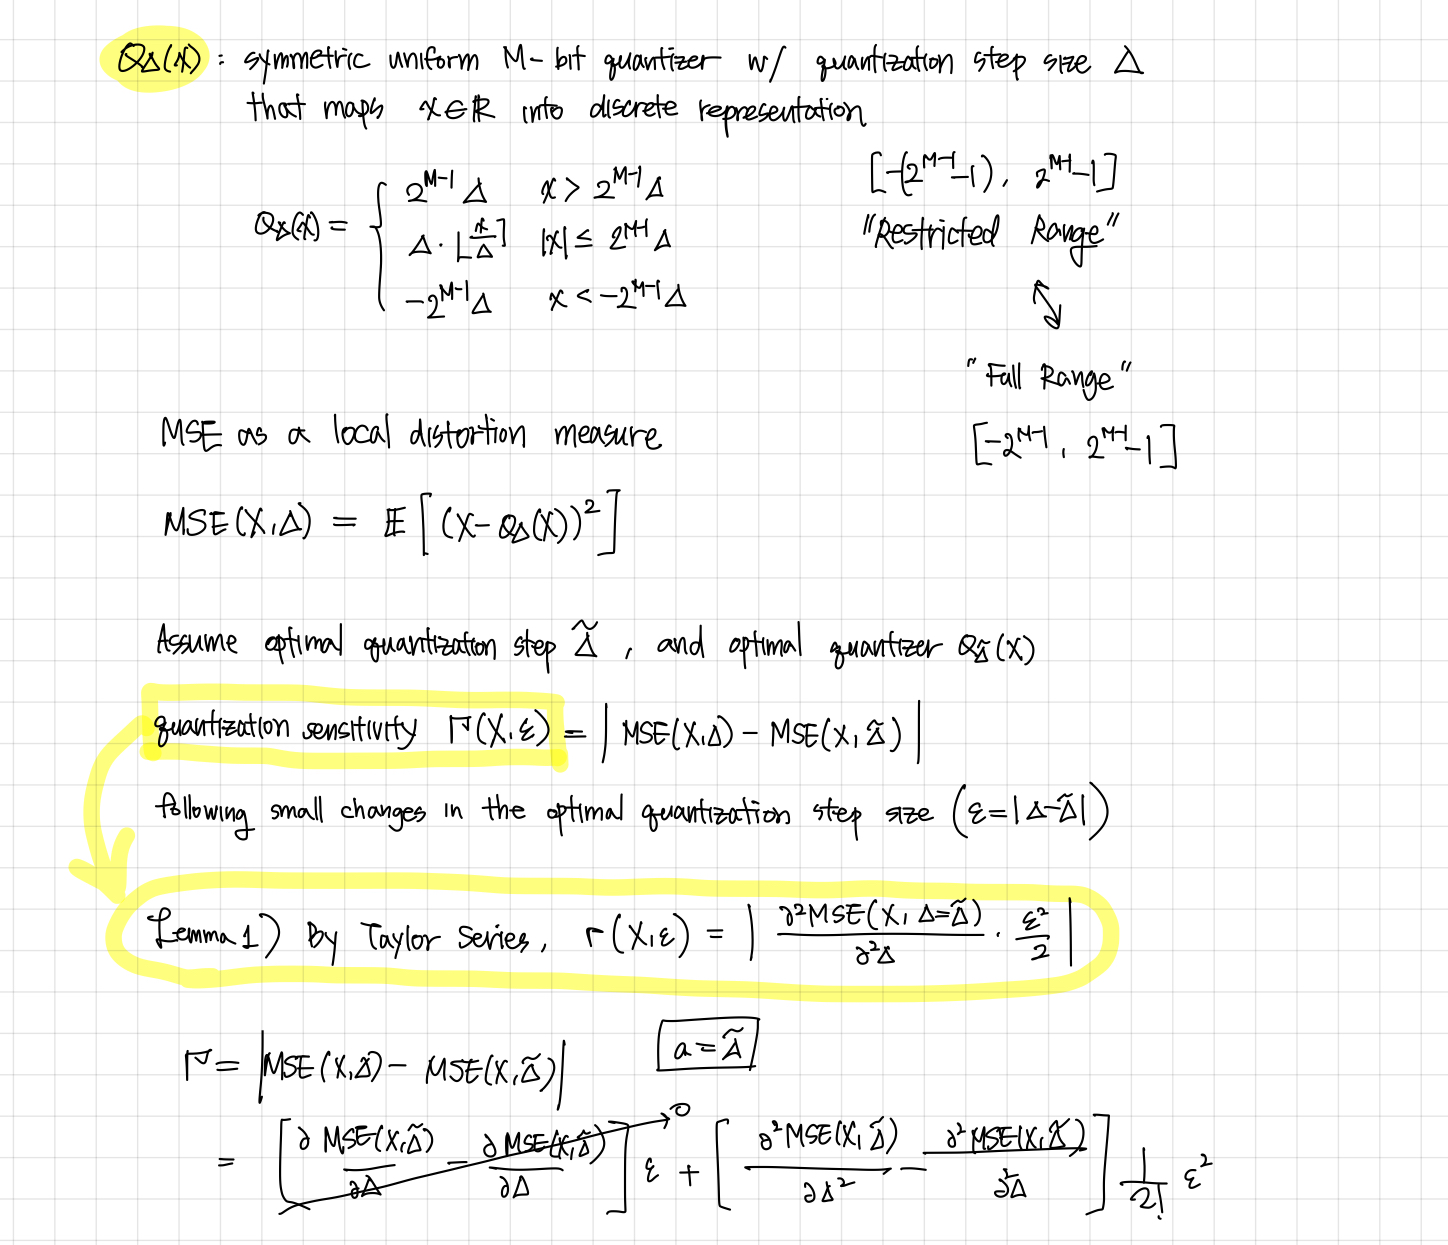 Q_Δ(x) : symmetric uniform M-bit quantizer w/ quantization step size Δ
that maps x∈ℝ into discrete representation
Q_Δ(x) = { 2^{M-1} Δ   x > 2^{M-1} Δ
Δ · ⌊x/Δ⌉   |x| ≤ 2^{M-1} Δ
-2^{M-1} Δ   x < -2^{M-1} Δ
[-(2^{M-1}-1), 2^{M-1}-1]
"Restricted Range"
↕
"Full Range"
[-2^{M-1}, 2^{M-1}-1]
MSE as a local distortion measure
MSE(X,Δ) = 𝔼[(X-Q_Δ(X))^2]
Assume optimal quantization step Δ̃ , and optimal quantizer Q_Δ̃(X)
quantization sensitivity Γ(X,ε) = | MSE(X,Δ) - MSE(X,Δ̃) |
following small changes in the optimal quantization step size (ε=|Δ-Δ̃|)
Lemma 1) By Taylor Series, Γ(X,ε) = | ∂²MSE(X,Δ=Δ̃)/∂²Δ · ε²/2 |
Γ = |MSE(X,Δ) - MSE(X,Δ̃)|   a=Δ̃
= [∂MSE(X,Δ̃)/∂Δ - ∂MSE(X,Δ̃)/∂Δ]→0 ε + [∂²MSE(X,Δ̃)/∂Δ² - ∂²MSE(X,Δ̃)/∂²Δ] 1/2! ε²